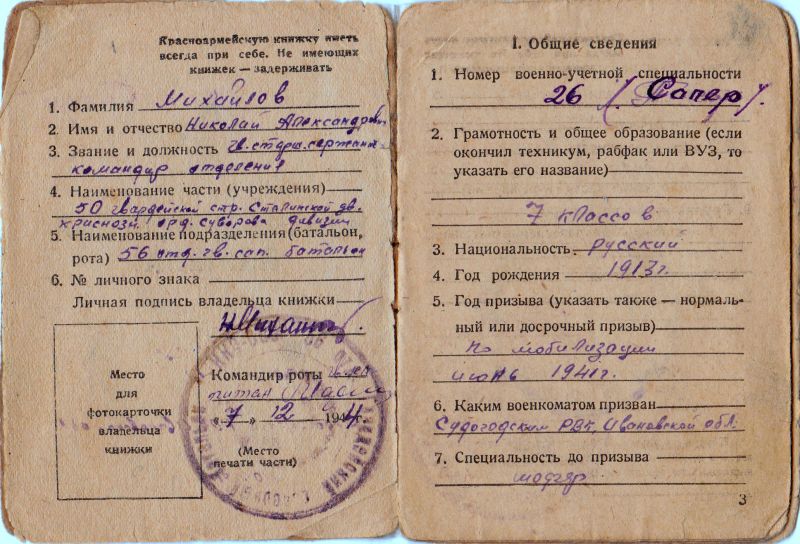 Красноармейскую книжку иметь
всегда при себе. Не имеющих
книжек — задерживать
1. Фамилия Михайлов
2. Имя и отчество Николай Александрович
3. Звание и должность гв. старш. сержант
командир отделения
4. Наименование части (учреждения)
50 гвардейской стр. Сталинской дв.
краснозн. орд. Суворова дивизии
5. Наименование подразделения (батальон,
рота) 56 отд. гв. сап. батальон
6. № личного знака
Личная подпись владельца книжки
Место
для
фотокарточки
владельца
книжки
Командир роты
„7" 12 1944г.
(Место
печати части)
I. Общие сведения
1. Номер военно-учетной специальности
26 (Сапер).
2. Грамотность и общее образование (если
окончил техникум, рабфак или ВУЗ, то
указать его название)
7 классов
3. Национальность русский
4. Год рождения 1913г.
5. Год призыва (указать также — нормаль-
ный или досрочный призыв)
по мобилизации
июнь 1941г.
6. Каким военкоматом призван
Судогодским РВК, Ивановской обл.
7. Специальность до призыва
3